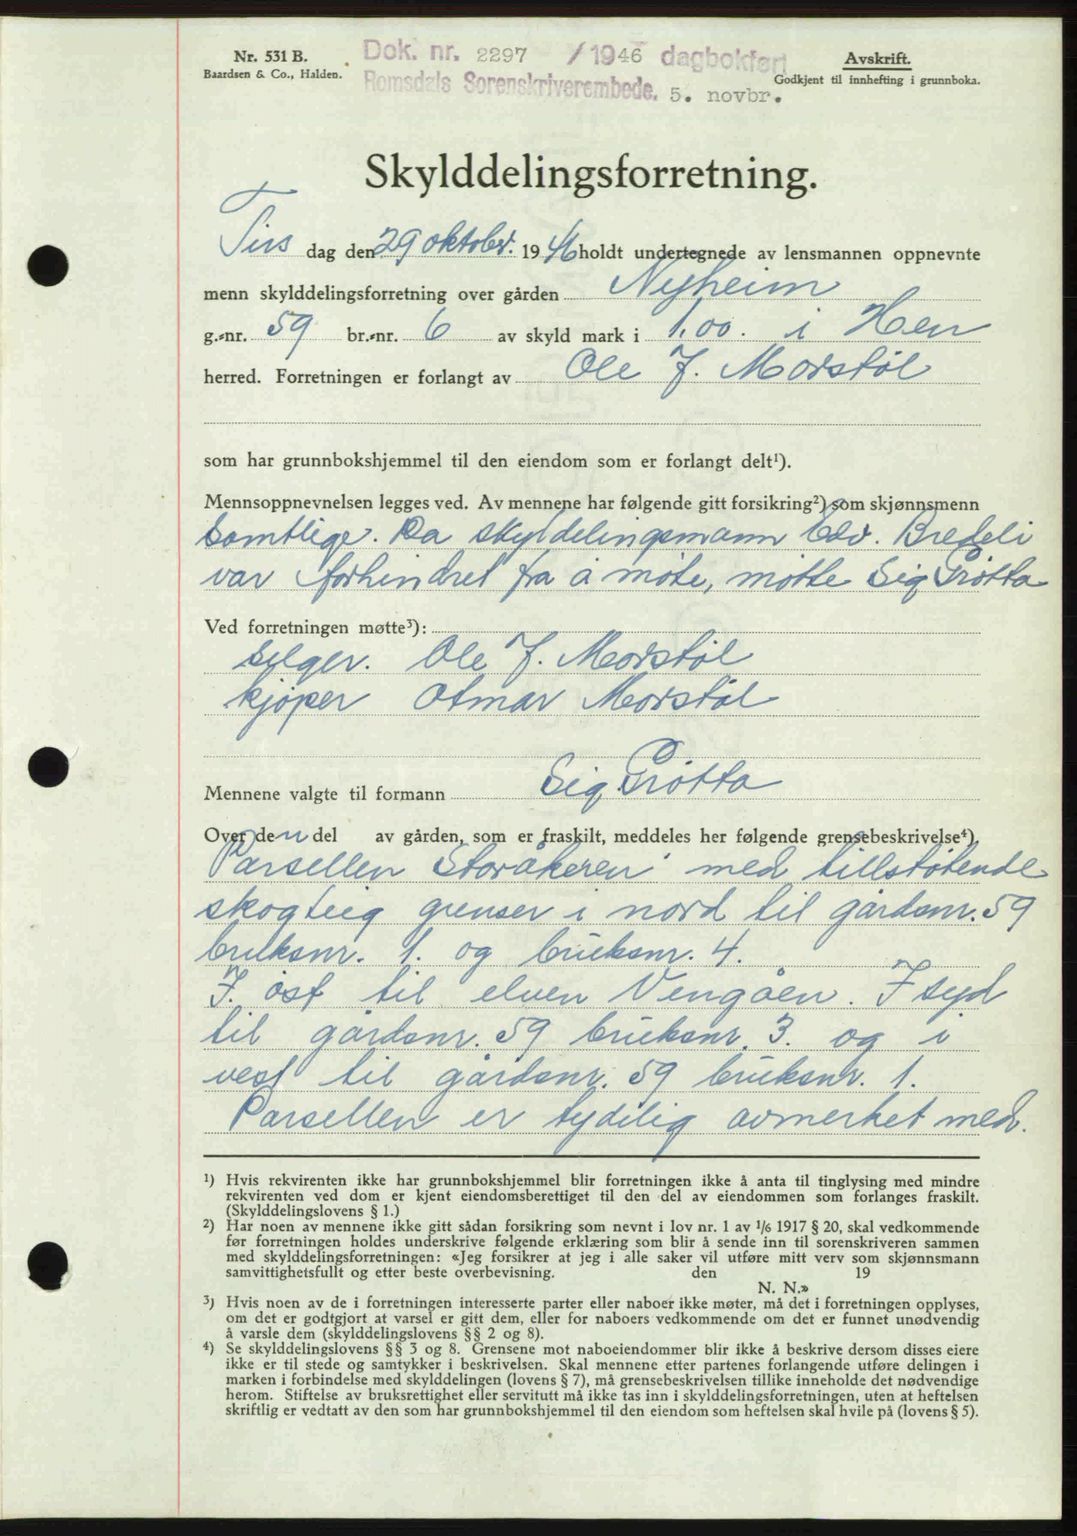 Nr. 531 B.
Baardsen & Co., Halden.
Dok. nr. 2297 /1946 dagbokført
Romsdals Sorenskriverembede. 5. novbr.
Avskrift.
Godkjent til innhefting i grunnboka.
Skylddelingsforretning.
Tirs dag den 29 oktober. 1946 holdt undertegnede av lensmannen oppnevnte
menn skylddelingsforretning over gården Nyheim
g.-nr. 59 br.-nr. 6 av skyld mark i 1,00. i Hen
herred. Forretningen er forlangt av Ole J. Morstøl
som har grunnbokshjemmel til den eiendom som er forlangt delt¹).
Mennsoppnevnelsen legges ved. Av mennene har følgende gitt forsikring²) som skjønnsmenn
Samtlige. Da skyldelingsmann Edv. Bredeli
var forhindret fra å møte, møtte Sig Grøtta
Ved forretningen møtte³):
Selger. Ole J. Morstøl
Kjøper Otmar Morstøl
Mennene valgte til formann Sig. Grøtta
Over den del av gården, som er fraskilt, meddeles her følgende grensebeskrivelse⁴)
Parsellen Storåkeren med tillstøtende
skogteig grenser i nord til gårdsnr. 59
bruksnr. 1. og bruksnr. 4.
I. øst til elven Vengåen. I syd
til gårdsnr. 59 bruksnr. 3. og i
vest til gårdsnr. 59 bruksnr. 1.
Parsellen er tydelig avmerket med.
¹) Hvis rekvirenten ikke har grunnbokshjemmel blir forretningen ikke å anta til tinglysing med mindre
rekvirenten ved dom er kjent eiendomsberettiget til den del av eiendommen som forlanges fraskilt.
(Skylddelingslovens § 1.)
²) Har noen av mennene ikke gitt sådan forsikring som nevnt i lov nr. 1 av 1/6 1917 § 20, skal vedkommende
før forretningen holdes underskrive følgende erklæring som blir å sende inn til sorenskriveren sammen
med skylddelingsforretningen: «Jeg forsikrer at jeg i alle saker vil utføre mitt verv som skjønnsmann
samvittighetsfullt og etter beste overbevisning. den 19
N. N.»
³) Hvis noen av de i forretningen interesserte parter eller naboer ikke møter, må det i forretningen opplyses,
om det er godtgjort at varsel er gitt dem, eller for naboers vedkommende om det er funnet unødvendig
å varsle dem (skylddelingslovens §§ 2 og 8).
⁴) Se skylddelingslovens §§ 3 og 8. Grensene mot naboeiendommer blir ikke å beskrive dersom disses eiere
ikke er til stede og samtykker i beskrivelsen. Skal mennene etter partenes forlangende utføre delingen i
marken i forbindelse med skylddelingen (lovens § 7), må grensebeskrivelsen tillike inneholde det nødvendige
herom. Stiftelse av bruksrettighet eller servitutt må ikke tas inn i skylddelingsforretningen, uten at heftelsen
skriftlig er vedtatt av den som har grunnbokshjemmel til den eiendom som heftelsen skal hvile på (lovens § 5).